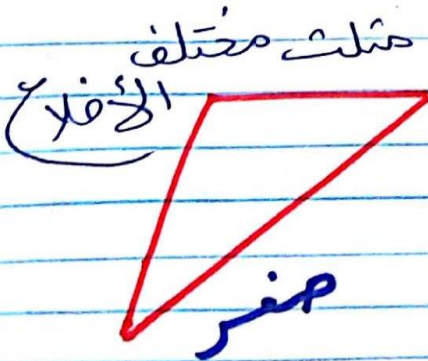 مثلث مختلف
الأضلاع
صفر